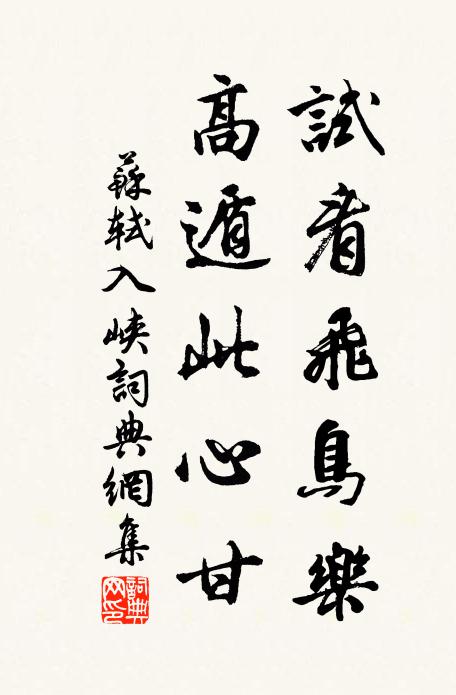 試看飛鳥樂
高遁此心甘
蘇軾入峽詞典網集
詞典網印